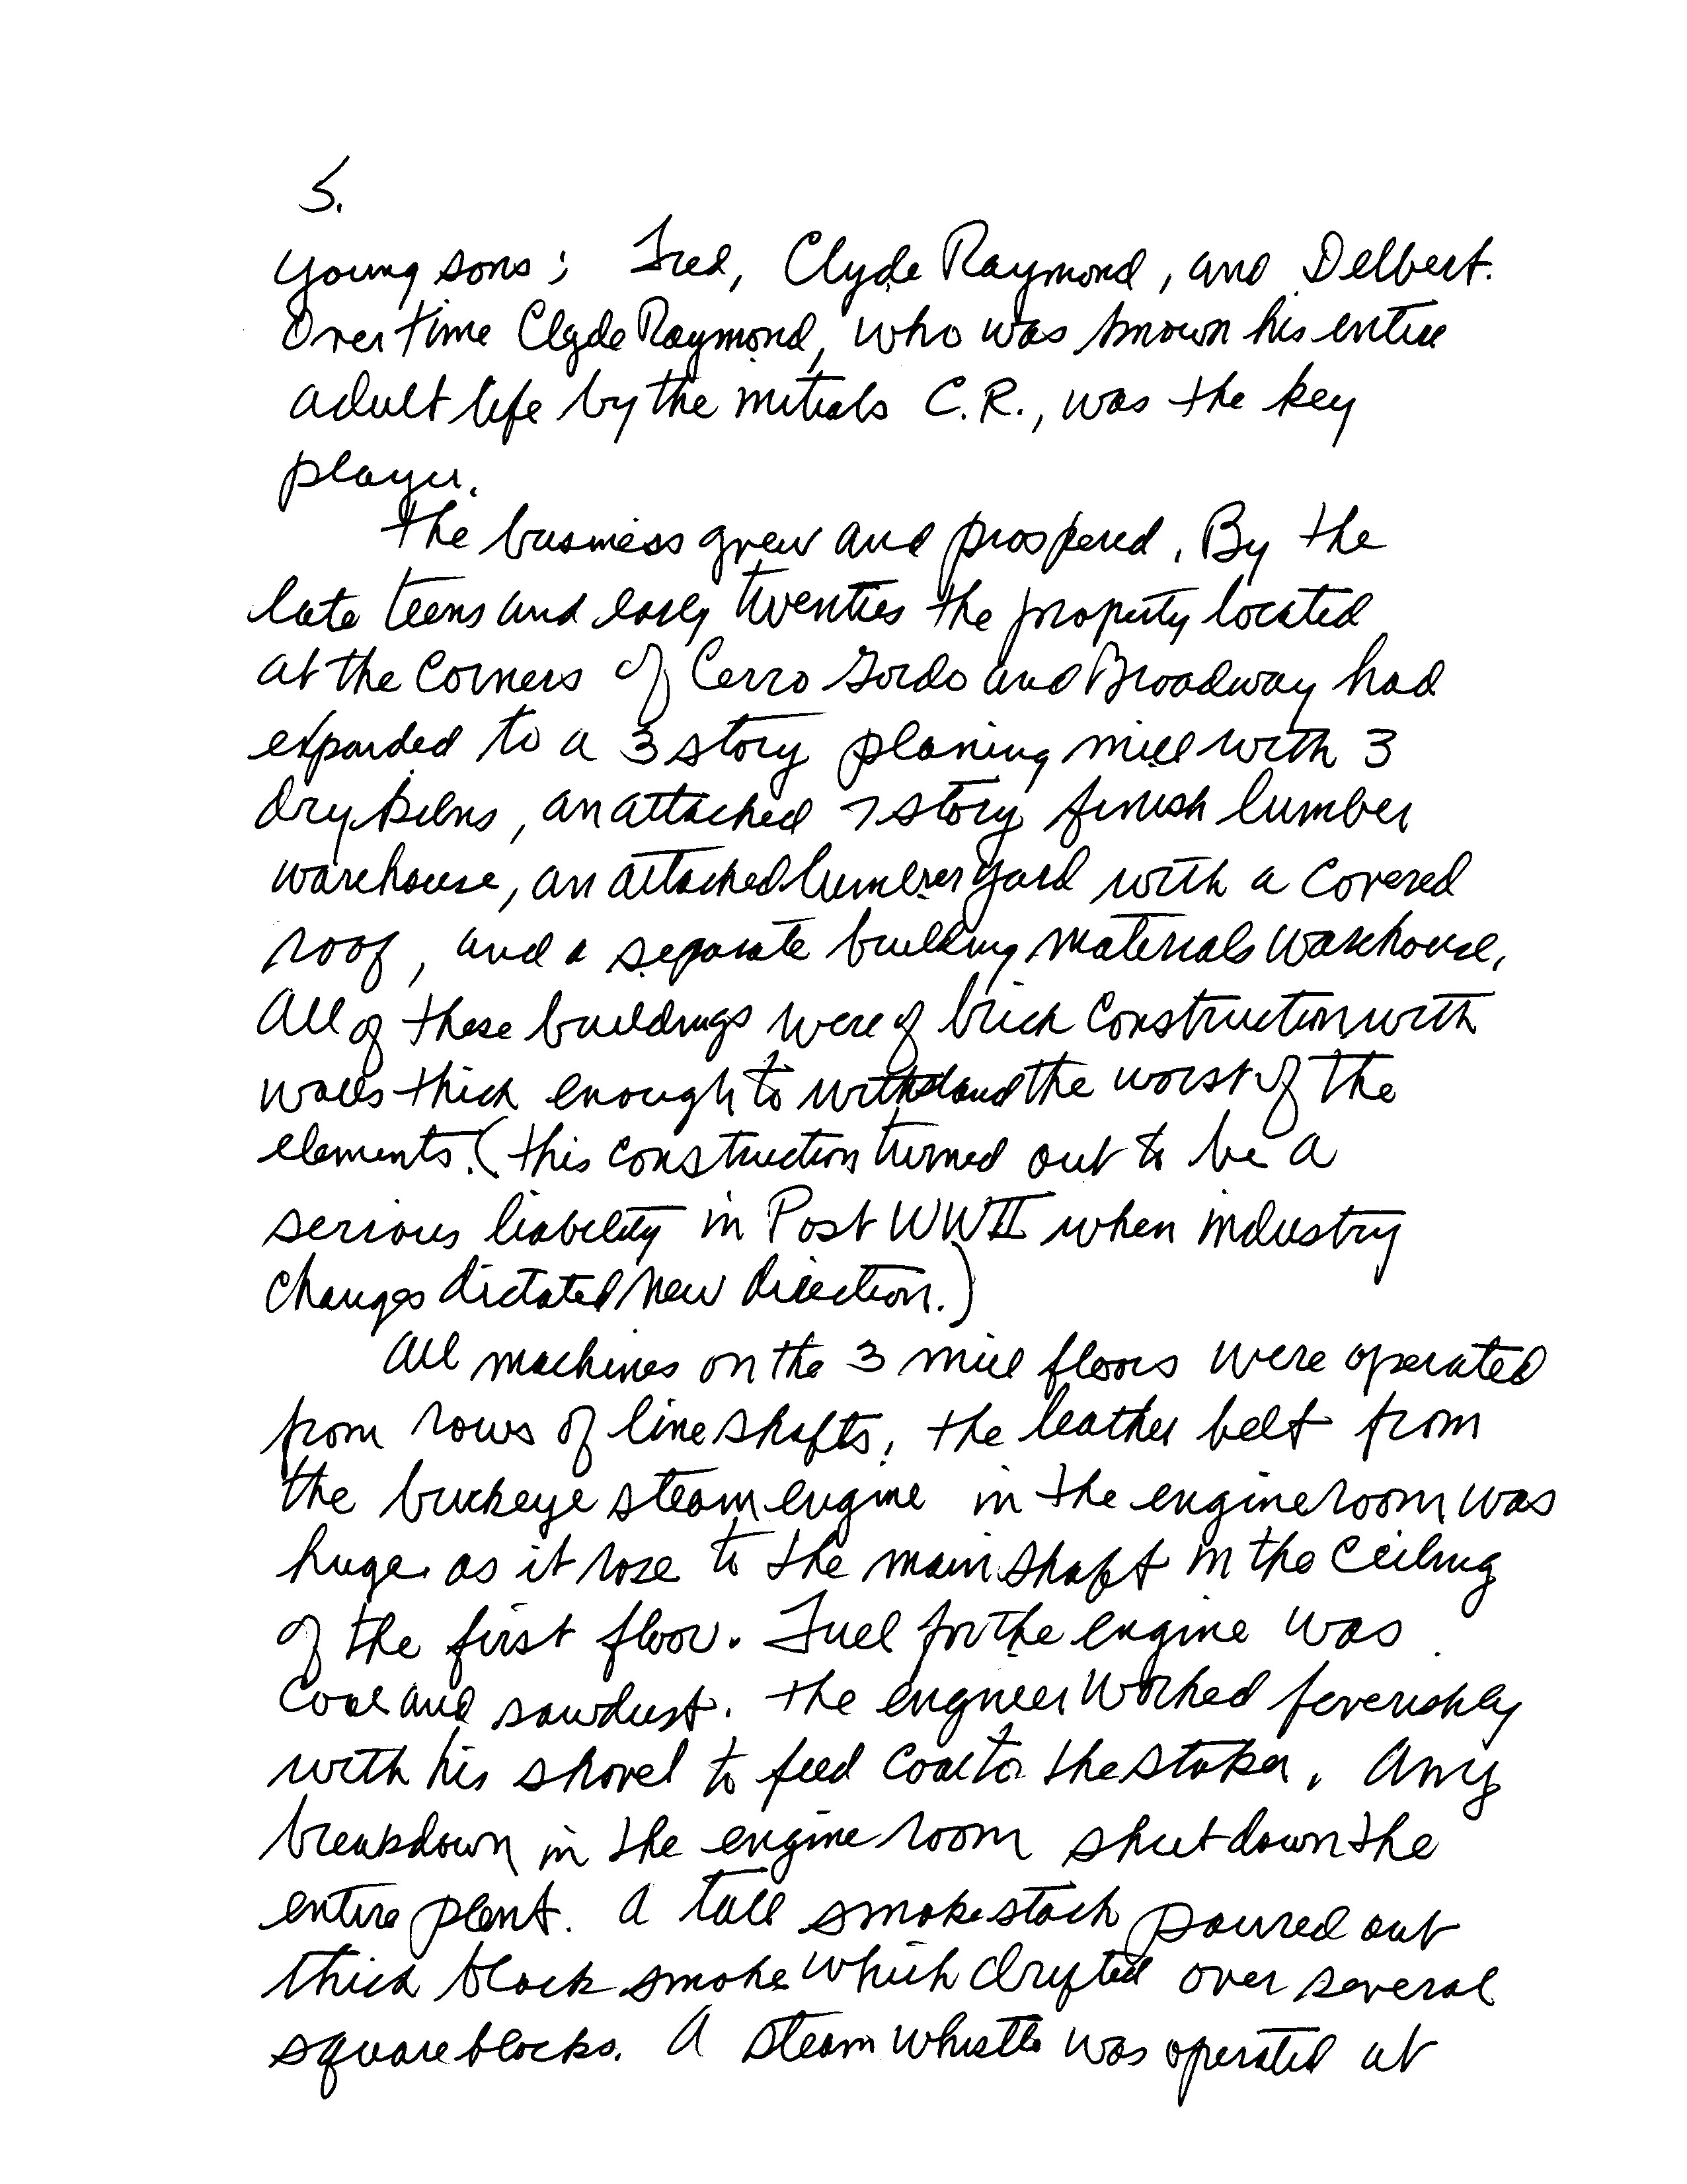 5.
young sons; Fred, Clyde Raymond, and Delbert.
Over time Clyde Raymond, who was known his entire
adult life by the initials C.R., was the key
player.
The business grew and prospered. By the
late teens and early twenties the property located
at the corners of Cerro Gordo and Broadway had
expanded to a 3 story planing mill with 3
dry kilns, an attached 7 story finish lumber
warehouse, an attached lumber yard with a covered
roof, and a separate building materials warehouse.
All of these buildings were of brick construction with
walls thick enough to withstand the worst of the
elements. (this construction turned out to be a
serious liability in Post WWII when industry
changes dictated new direction.)
All machines on the 3 mill floors were operated
from rows of line shafts. The leather belt from
the buckeye steam engine in the engine room was
huge as it rose to the main shaft in the ceiling
of the first floor. Fuel for the engine was
coal and sawdust. The engineer worked feverishly
with his shovel to feed coal to the stoker. Any
breakdown in the engine room shut down the
entire plant. A tall smoke stack poured out
thick black smoke which drifted over several
square blocks. A steam whistle was operated at